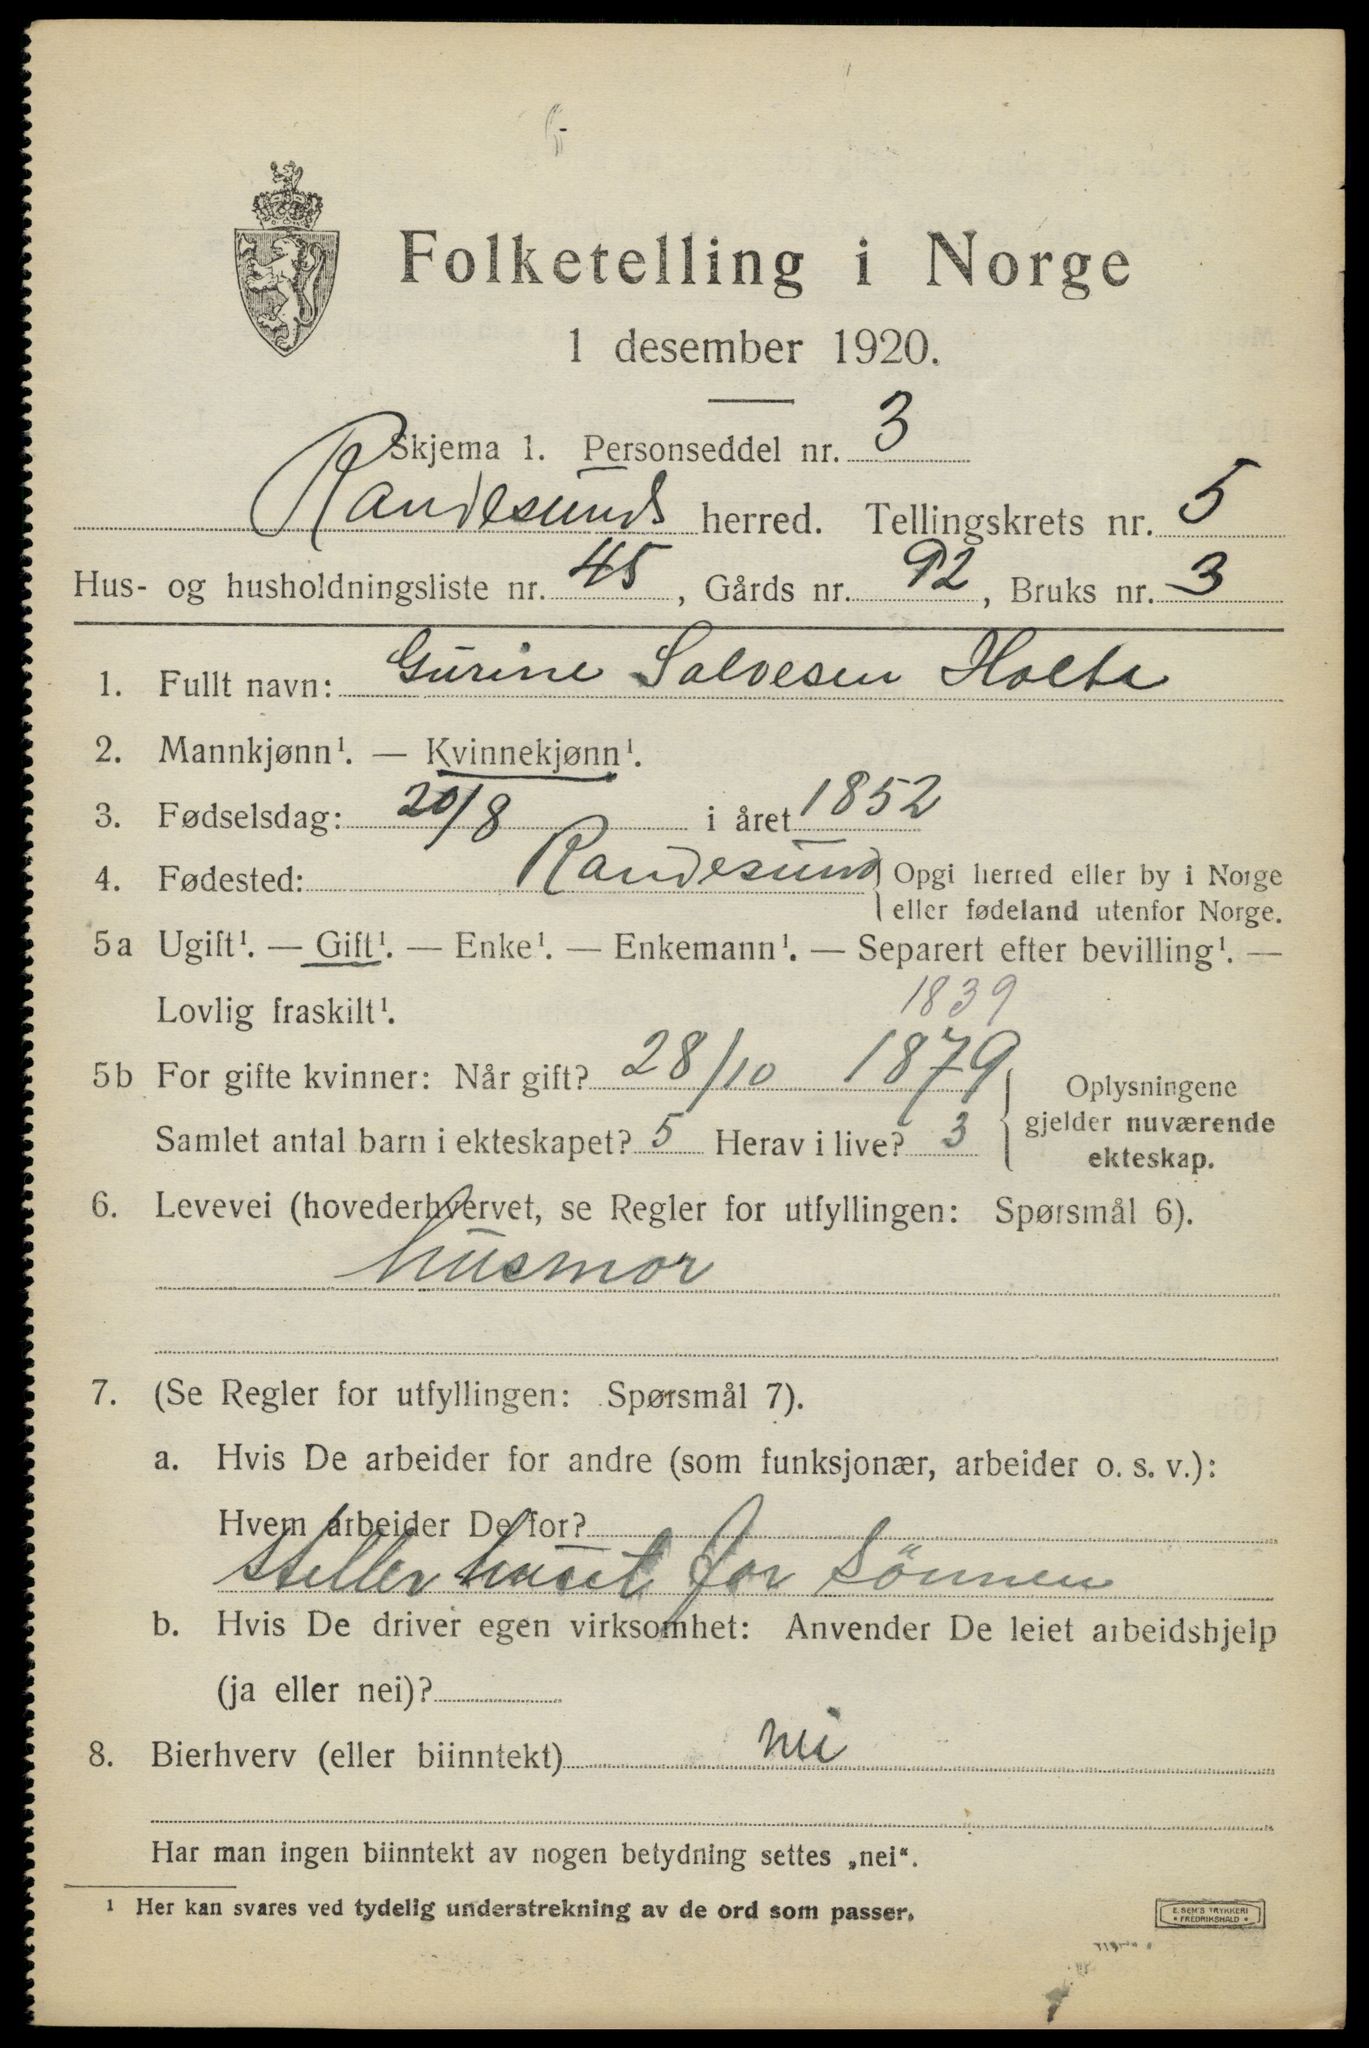 Folketelling i Norge
1 desember 1920.
Skjema 1. Personseddel nr. 3
Randesunds herred. Tellingskrets nr. 5
Hus- og husholdningsliste nr. 45, Gårds nr. 92, Bruks nr. 3
1. Fullt navn: Gurine Salvesen Holte
2. Mannkjønn¹. — Kvinnekjønn¹.
3. Fødselsdag: 20/8 i året 1852
4. Fødested: Randesund { Opgi herred eller by i Norge
eller fødeland utenfor Norge.
5a Ugift¹. — Gift¹. — Enke¹. — Enkemann¹. — Separert efter bevilling¹. —
Lovlig fraskilt¹. 1839
5b For gifte kvinner: Når gift? 28/10 1879
Samlet antal barn i ekteskapet? 5 Herav i live? 3
Oplysningene
gjelder nuværende
ekteskap.
6. Levevei (hovederhvervet, se Regler for utfyllingen: Spørsmål 6).
husmor
7. (Se Regler for utfyllingen: Spørsmål 7).
a. Hvis De arbeider for andre (som funksjonær, arbeider o. s. v.):
Hvem arbeider De for?
steller huset for Sönnen
b. Hvis De driver egen virksomhet: Anvender De leiet arbeidshjelp
(ja eller nei)?
8. Bierhverv (eller biinntekt) nei
Har man ingen biinntekt av nogen betydning settes „nei“.
¹ Her kan svares ved tydelig understrekning av de ord som passer.
E. SEM'S TRYKKERI
• FREDRIKSHALD •